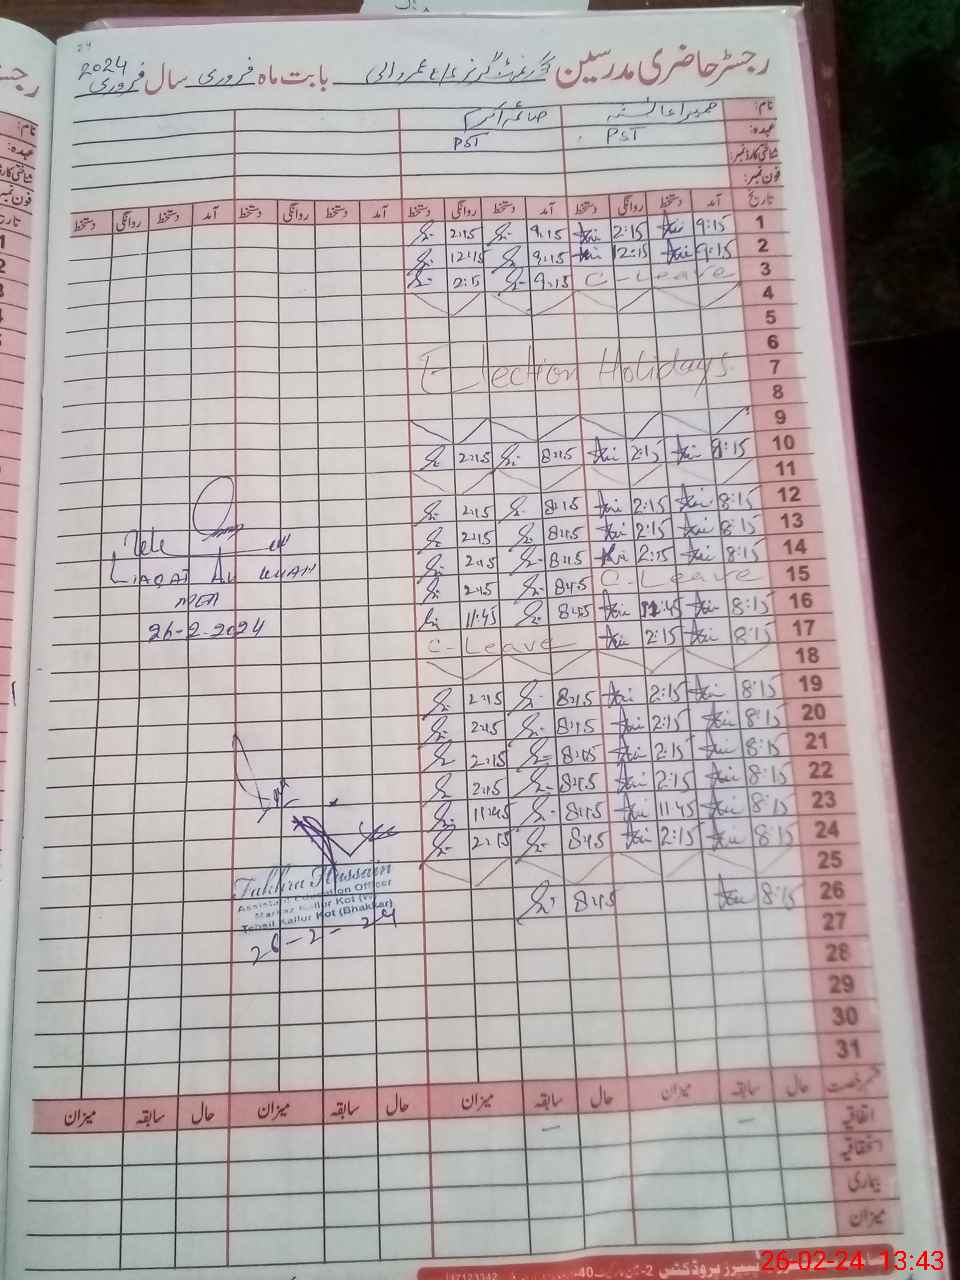 رجسٹر حاضری مدرسین گورنمنٹ گرلز بابت ماہ فروری سال فروری 2024
نام:
عہدہ: PST PST
شناختی کارڈ نمبر:
فون نمبر:
تاریخ آمد دستخط روانگی دستخط آمد دستخط روانگی دستخط آمد دستخط روانگی دستخط آمد دستخط روانگی دستخط
1 9:15 2:15 9:15 2:15
2 9:15 12:15 9:15 12:15
3 C-Leave 9:15 2:15
4
5
6
7 Election Holidays
8
9
10 8:15 2:15 8:15 2:15
11
12 8:15 2:15 8:15 2:15
13 8:15 2:15 8:15 2:15
14 8:15 2:15 8:15 2:15
15 C-Leave 8:15 2:15
16 8:15 11:45 8:15 11:45
17 8:15 2:15 C-Leave
18
19 8:15 2:15 8:15 2:15
20 8:15 2:15 8:15 2:15
21 8:15 2:15 8:15 2:15
22 8:15 2:15 8:15 2:15
23 8:15 11:45 8:15 11:45
24 8:15 2:15 8:15 2:15
25
26 8:15 8:15
27
28
29
30
31
LIAQAT ALI KHAN
MEA
26-2-2024
Fakhra Hussain
Assistant Education Officer
Markaz Kallur Kot (W)
Tehsil Kallur Kot (Bhakkar)
26-2-24
قسم رخصت حال سابقہ میزان حال سابقہ میزان حال سابقہ میزان حال سابقہ میزان
اتفاقیہ - -
بیماری
میزان
26-02-24 13:43